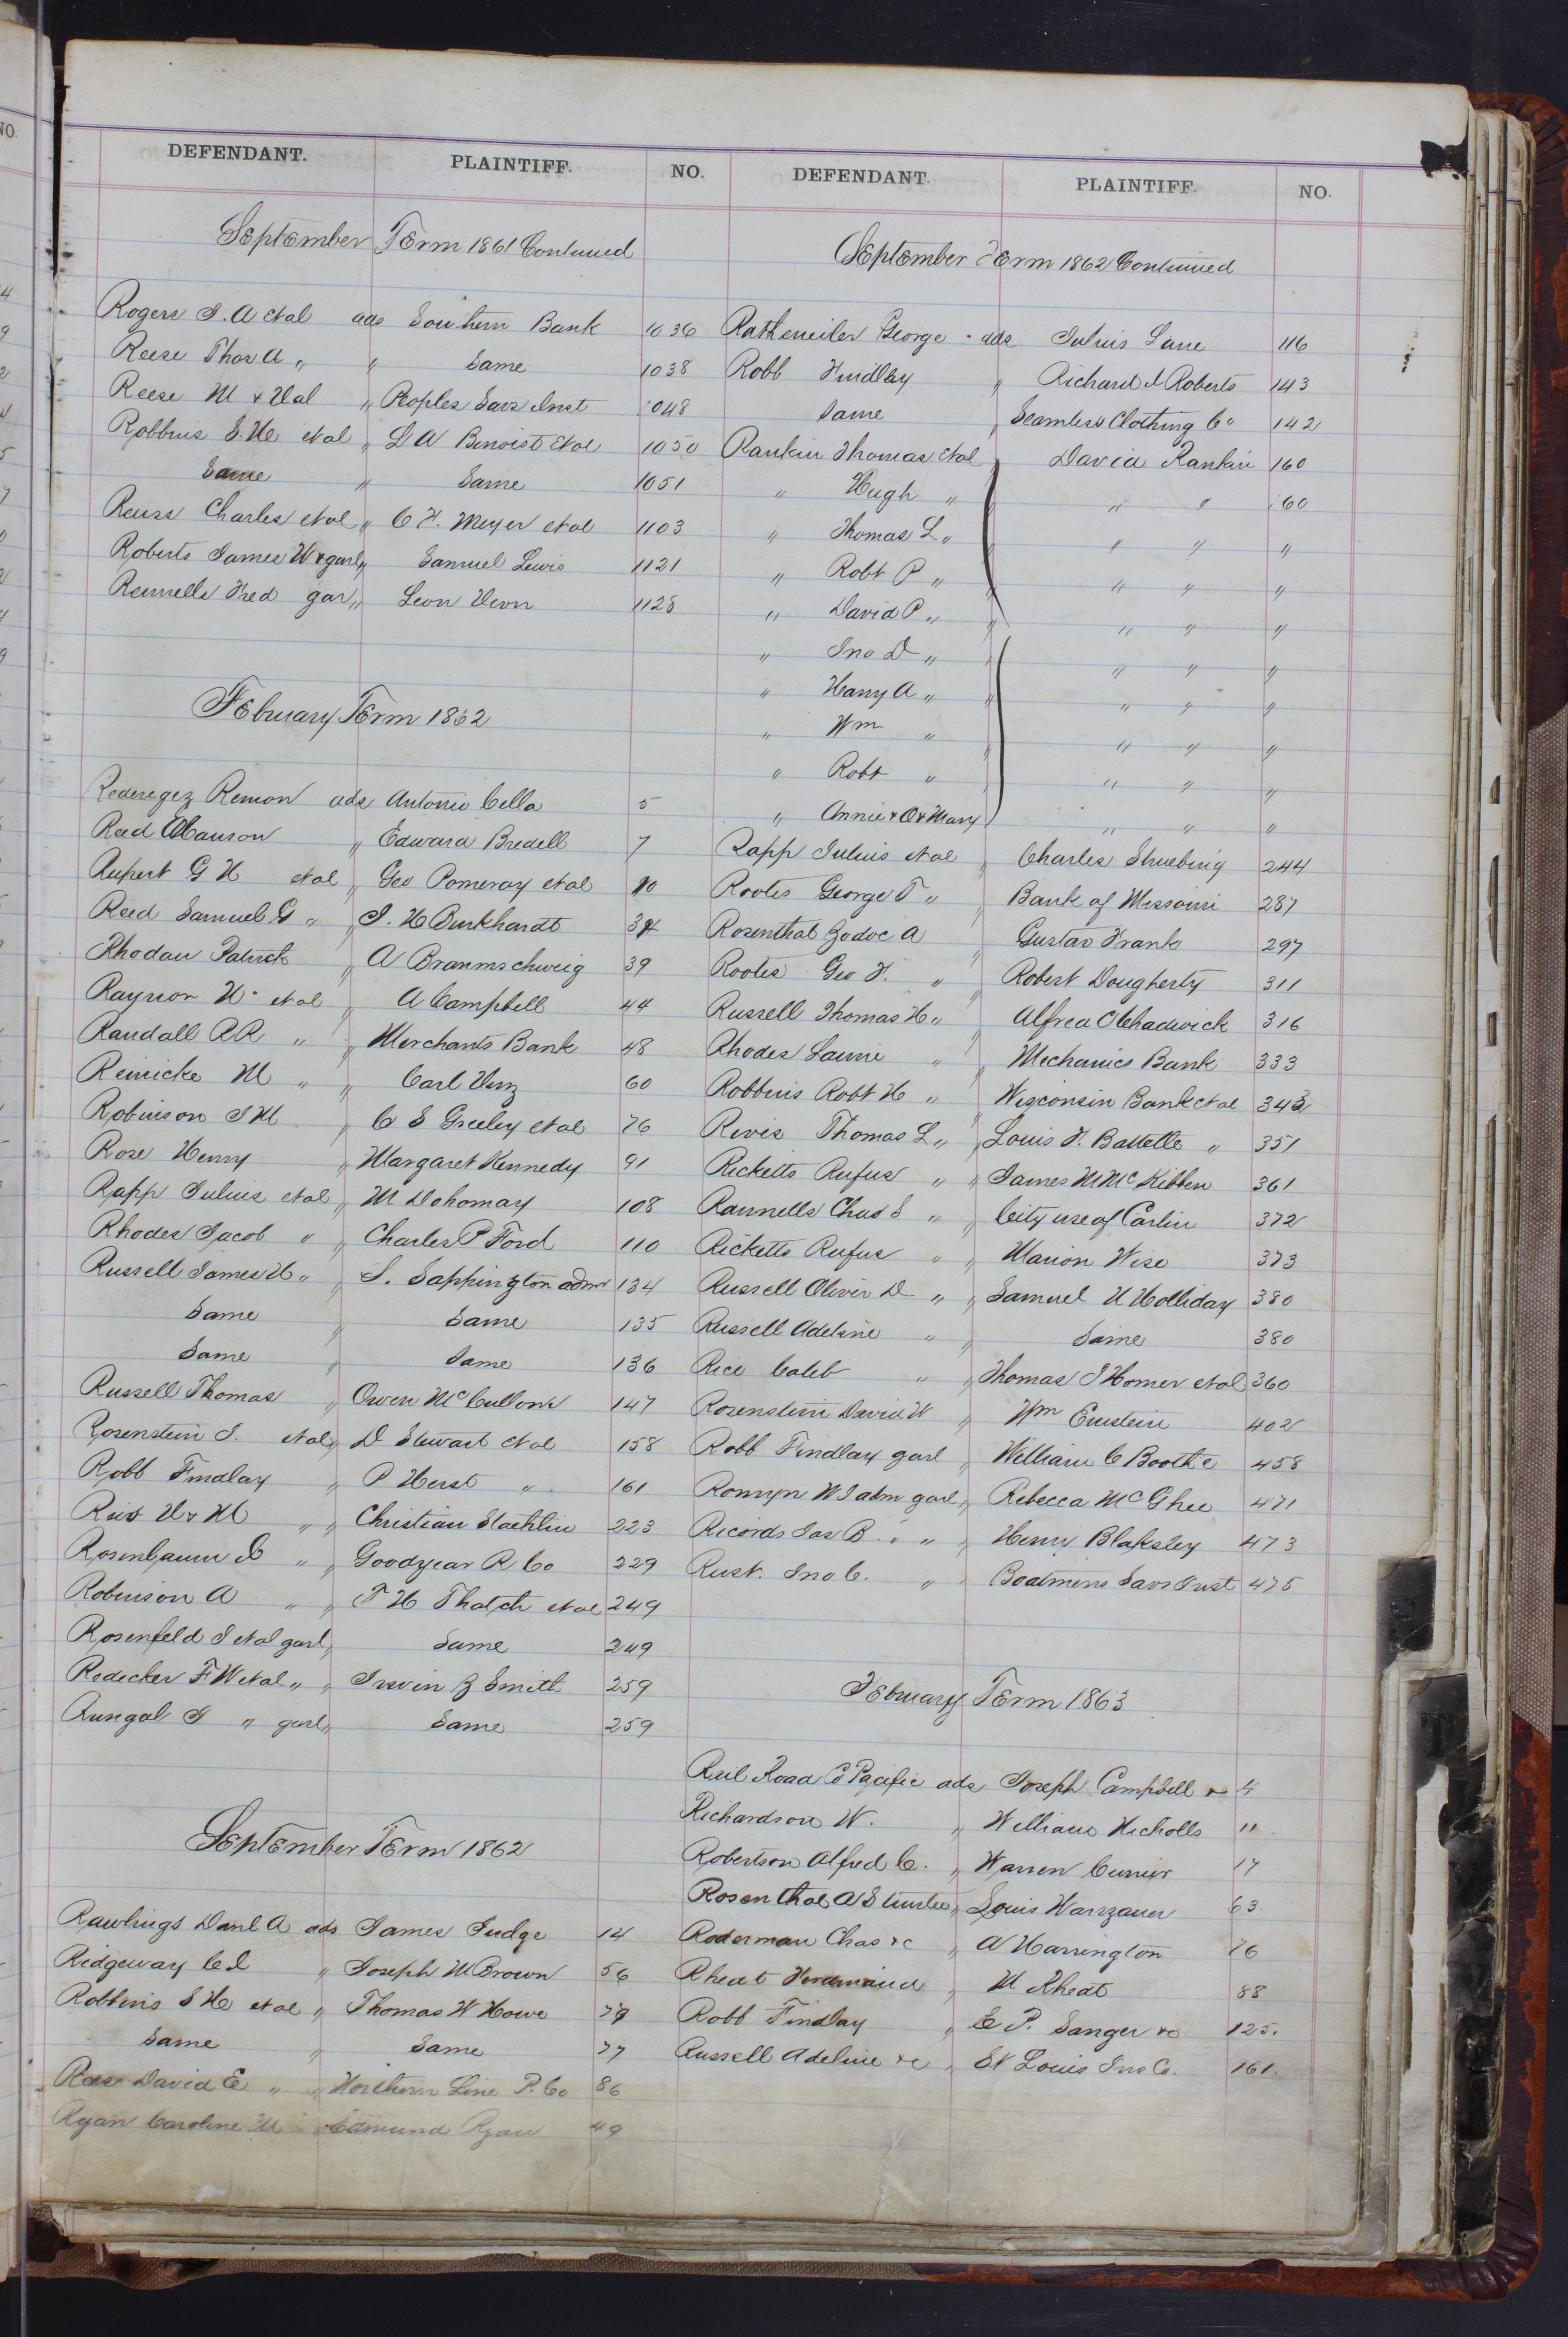 NO.
DEFENDANT. PLAINTIFF. NO.
September Term 1861 Continued
Rogers J. A et al ads Southern Bank 1036
Reese Thos A " " Same 1038
Reese M & Val " Peoples Savs Inst 1048
Robbins S. H. et al " L A Benoist et al 1050
Same " Same 1051
Reuss Charles et al " C F. Meyer et al 1103
Roberts James W & garl " Samuel Lewis 1121
Rennells Fred gar " Leon 1128
February Term 1862
Rederegez Remon ads Antonio Cella 5
Reed " Edward Bredell 7
Rupert G H et al " Geo Pomeroy et al 10
Reed Samuel G " " J. H Burkhardt 34
Rhodau Patrick " A Braunschweig 39
Raynor H. et al " A Campbell 44
Randall R R " " Merchants Bank 48
Reinicke M " " Carl 60
Robinson J M " C S Greeley et al 76
Rose Henry " Margaret Kennedy 91
Rapp Julius et al " M Dohomay 108
Rhodes Jacob " " Charles P Ford 110
Russell James H " " S. Sappington admr 134
Same " Same 135
Same " Same 136
Russell Thomas " Owen McCullom 147
Rosenstein J. et al " D Stewart et al 158
Robb Findlay " P Herst " 161
H & M " " Christian Staehlin 223
Rosenbaum " " Goodyear R Co 229
Robinson A " " T H Thatch et al 249
Rosenfeld J et al garl " Same 249
Redecker F W et al " " Irwin Z Smith 259
Rungal J " garl " Same 259
September Term 1862
Rawlings Danl A ads James Judge 14
Ridgeway C I " Joseph M Brown 56
Robbins S H et al " Thomas W Howe 79
Same " Same 77
David E " " Northern Line P. Co 86
Ryan Caroline M Edmund Ryan 49
DEFENDANT. PLAINTIFF. NO.
September Term 1862 Continued
Ratheneiler George - ads Julius Lane 116
Robb Findlay " Richard J Roberts 143
Same " Seamless Clothing Co 142
Rankin Thomas et al " David Rankin 160
" Hugh " " " 160
" Thomas L " " " " "
" Robt P " " " " "
" David P " " " " "
" Jno D " " " " "
" Harry A " " " " "
" Wm " " " " "
" Robt " " " "
" Annie & O & Mary " " "
Rapp Julius et al " Charles Shuebrig 244
Rootes George T " " Bank of Missouri 287
Rosenthal Zodoc A " Gustav Frank 297
Rootes Geo F. " " Robert Dougherty 311
Russell Thomas H " " Alfred Chadwick 316
Rhodes Laurie " " Mechanics Bank 333
Robbins Robt H " " Wisconsin Bank et al 343
Thomas L " " Louis F. Battelle " 351
Ricketts Rufus " " James M McKibben 361
Rannells Chas S " " City use of Carlin 372
Ricketts Rufus " " Marion Wise 373
Russell Oliver D " " Samuel H Holliday 380
Russell Adeline " " Same 380
Rice Caleb " " Thomas J Homer et al 360
Rosenstein David W " Wm Einstein 402
Robb Findlay garl " William C Boothe 458
Romyn W J adm garl " Rebecca McGhee 471
Records Jas B. " " " Henry Blaksley 473
Rust. Jno C. " " Boatmens Savs Inst 475
February Term 1863
Rail Road Co Pacific ads Joseph Campbell & 4
Richardson W. " William Nicholls 11
Robertson Alfred C. " Warren Currier 17
Rosenthal A S trustee " Louis Warszauer 63
Roderman Chas &c " A Harrington 76
Rheat " M Rheat 88
Robb Findlay " E P. Sanger &c 125.
Russell Adeline &c " St Louis Ins Co. 161